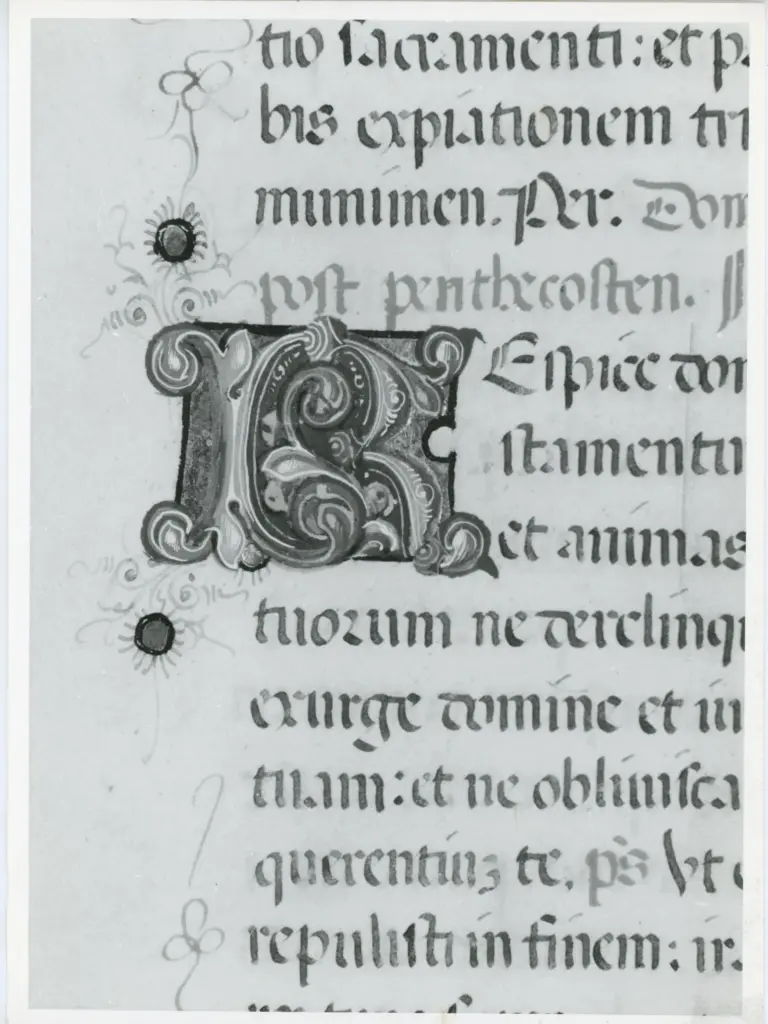 tio sacramenti: et p
bis expiationem tri
munimen. Per. Dom
post penthecosten.
REspice dom
stamentu
et animas
tuorum ne derelinqu
exurge domine et iu
tuam: et ne obliuisca
querentiuʒ te. ps Vt
repulisti in finem: ir